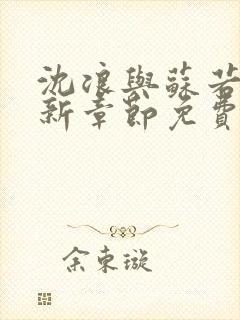 沈浪與蘇若
新章節免費
余東璇